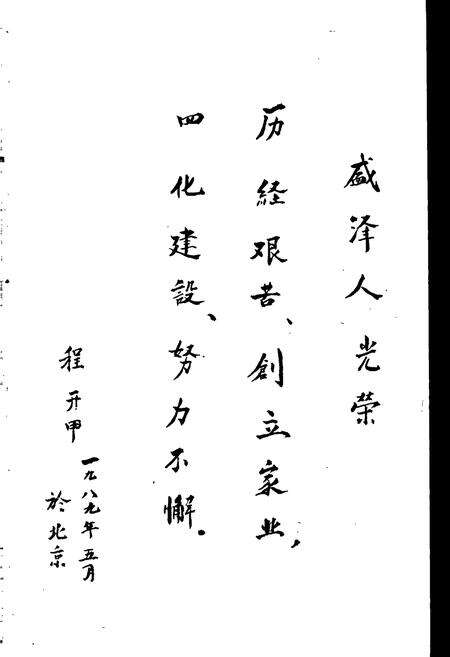 盛泽人光荣
历经艰苦、創立家业，
四化建設、努力不懈。
程开甲
一九八九年五月
於北京